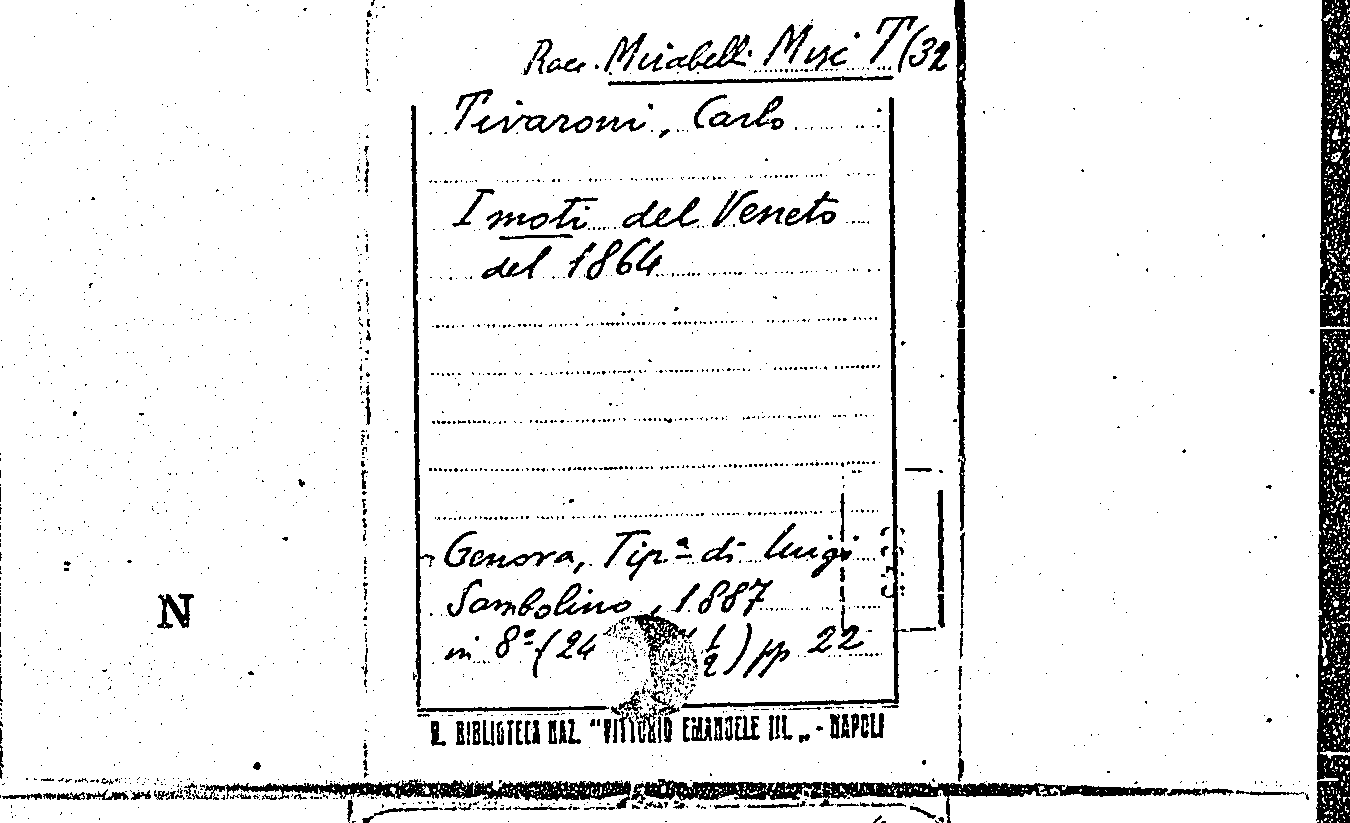 Racc. Mirabelli Misc T (32
Tivaroni, Carlo
I moti del Veneto
del 1864
Genova, Tip.ª di Luigi
Sambolino, 1887
in 8º (24 ½) pp 22
N
R. BIBLIOTECA NAZ. "VITTORIO EMANUELE III. „ - NAPOLI